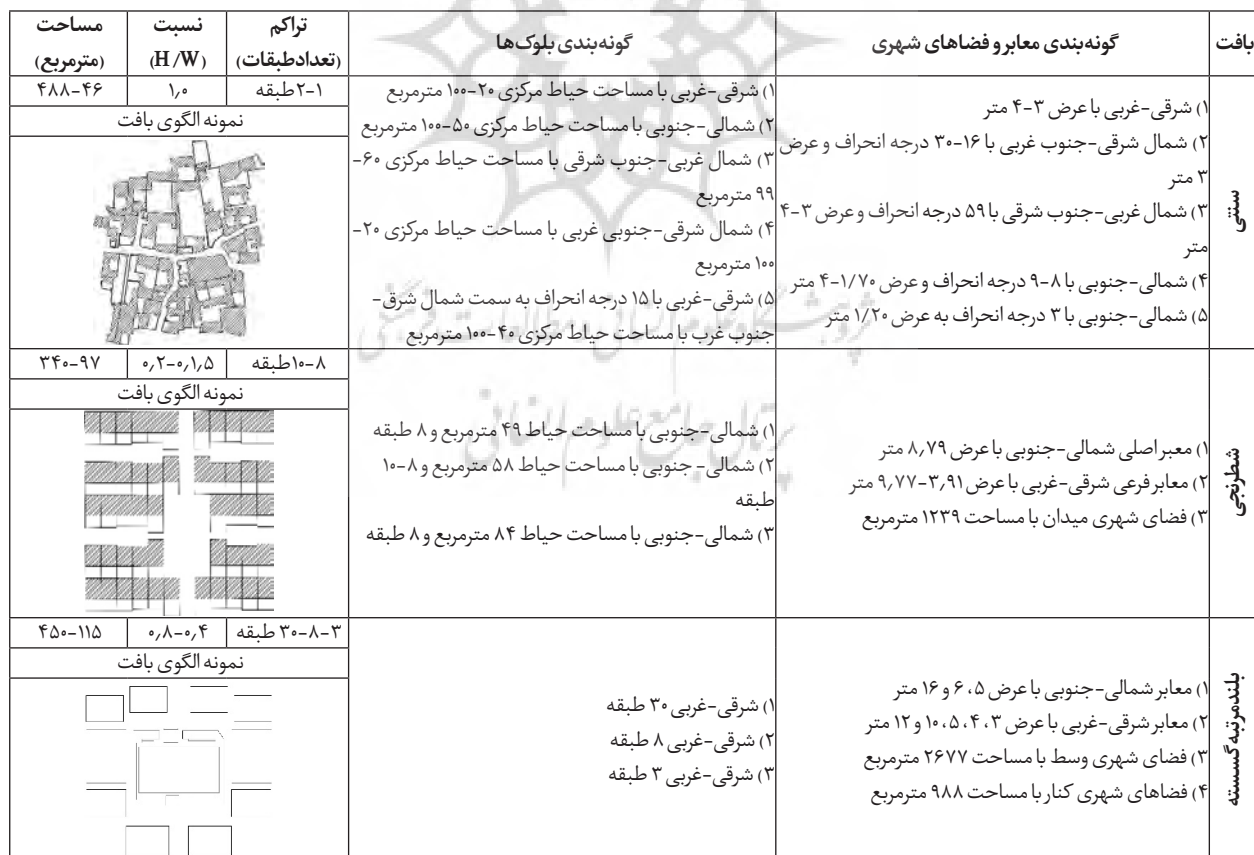 بافت
گونه‌بندی معابر و فضاهای شهری
گونه‌بندی بلوک‌ها
تراکم
(تعدادطبقات)
نسبت
(H/W)
مساحت
(مترمربع)
سنتی
۱) شرقی-غربی با عرض ۳-۴ متر
۲) شمال شرقی-جنوب غربی با ۱۶-۳۰ درجه انحراف و عرض
۳ متر
۳) شمال غربی-جنوب شرقی با ۵۹ درجه انحراف و عرض ۳-۴
متر
۴) شمالی-جنوبی با ۸-۹ درجه انحراف و عرض ۱/۷۰-۴ متر
۵) شمالی-جنوبی با ۳ درجه انحراف به عرض ۱/۲۰ متر
۱) شرقی-غربی با مساحت حیاط مرکزی ۲۰-۱۰۰ مترمربع
۲) شمالی-جنوبی با مساحت حیاط مرکزی ۵۰-۱۰۰ مترمربع
۳) شمال غربی-جنوب شرقی با مساحت حیاط مرکزی ۶۰-
۹۹ مترمربع
۴) شمال شرقی-جنوبی غربی با مساحت حیاط مرکزی ۲۰-
۱۰۰ مترمربع
۵) شرقی-غربی با ۱۵ درجه انحراف به سمت شمال شرق-
جنوب غرب با مساحت حیاط مرکزی ۴۰-۱۰۰ مترمربع
۱-۲طبقه
۱٫۰
۴۶-۴۸۸
نمونه الگوی بافت
شطرنجی
۱) معبر اصلی شمالی-جنوبی با عرض ۸٫۷۹ متر
۲) معابر فرعی شرقی-غربی با عرض ۳٫۹۱-۹٫۷۷ متر
۳) فضای شهری میدان با مساحت ۱۲۳۹ مترمربع
۱) شمالی-جنوبی با مساحت حیاط ۴۹ مترمربع و ۸ طبقه
۲) شمالی- جنوبی با مساحت حیاط ۵۸ مترمربع و ۸-۱۰
طبقه
۳) شمالی-جنوبی با مساحت حیاط ۸۴ مترمربع و ۸ طبقه
۸-۱۰طبقه
۰٫۲-۰٫۱٫۵
۹۷-۳۴۰
نمونه الگوی بافت
بلندمرتبه گسسته
۱) معابر شمالی-جنوبی با عرض ۵، ۶ و ۱۶ متر
۲) معابر شرقی-غربی با عرض ۳، ۴، ۵، ۱۰ و ۱۲ متر
۳) فضای شهری وسط با مساحت ۲۶۷۷ مترمربع
۴) فضاهای شهری کنار با مساحت ۹۸۸ مترمربع
۱) شرقی-غربی ۳۰ طبقه
۲) شرقی-غربی ۸ طبقه
۳) شرقی-غربی ۳ طبقه
۳-۸-۳۰ طبقه
۰٫۴-۰٫۸
۱۱۵-۴۵۰
نمونه الگوی بافت
پژوهشگاه علوم انسانی و مطالعات فرهنگی
پرتال جامع علوم انسانی